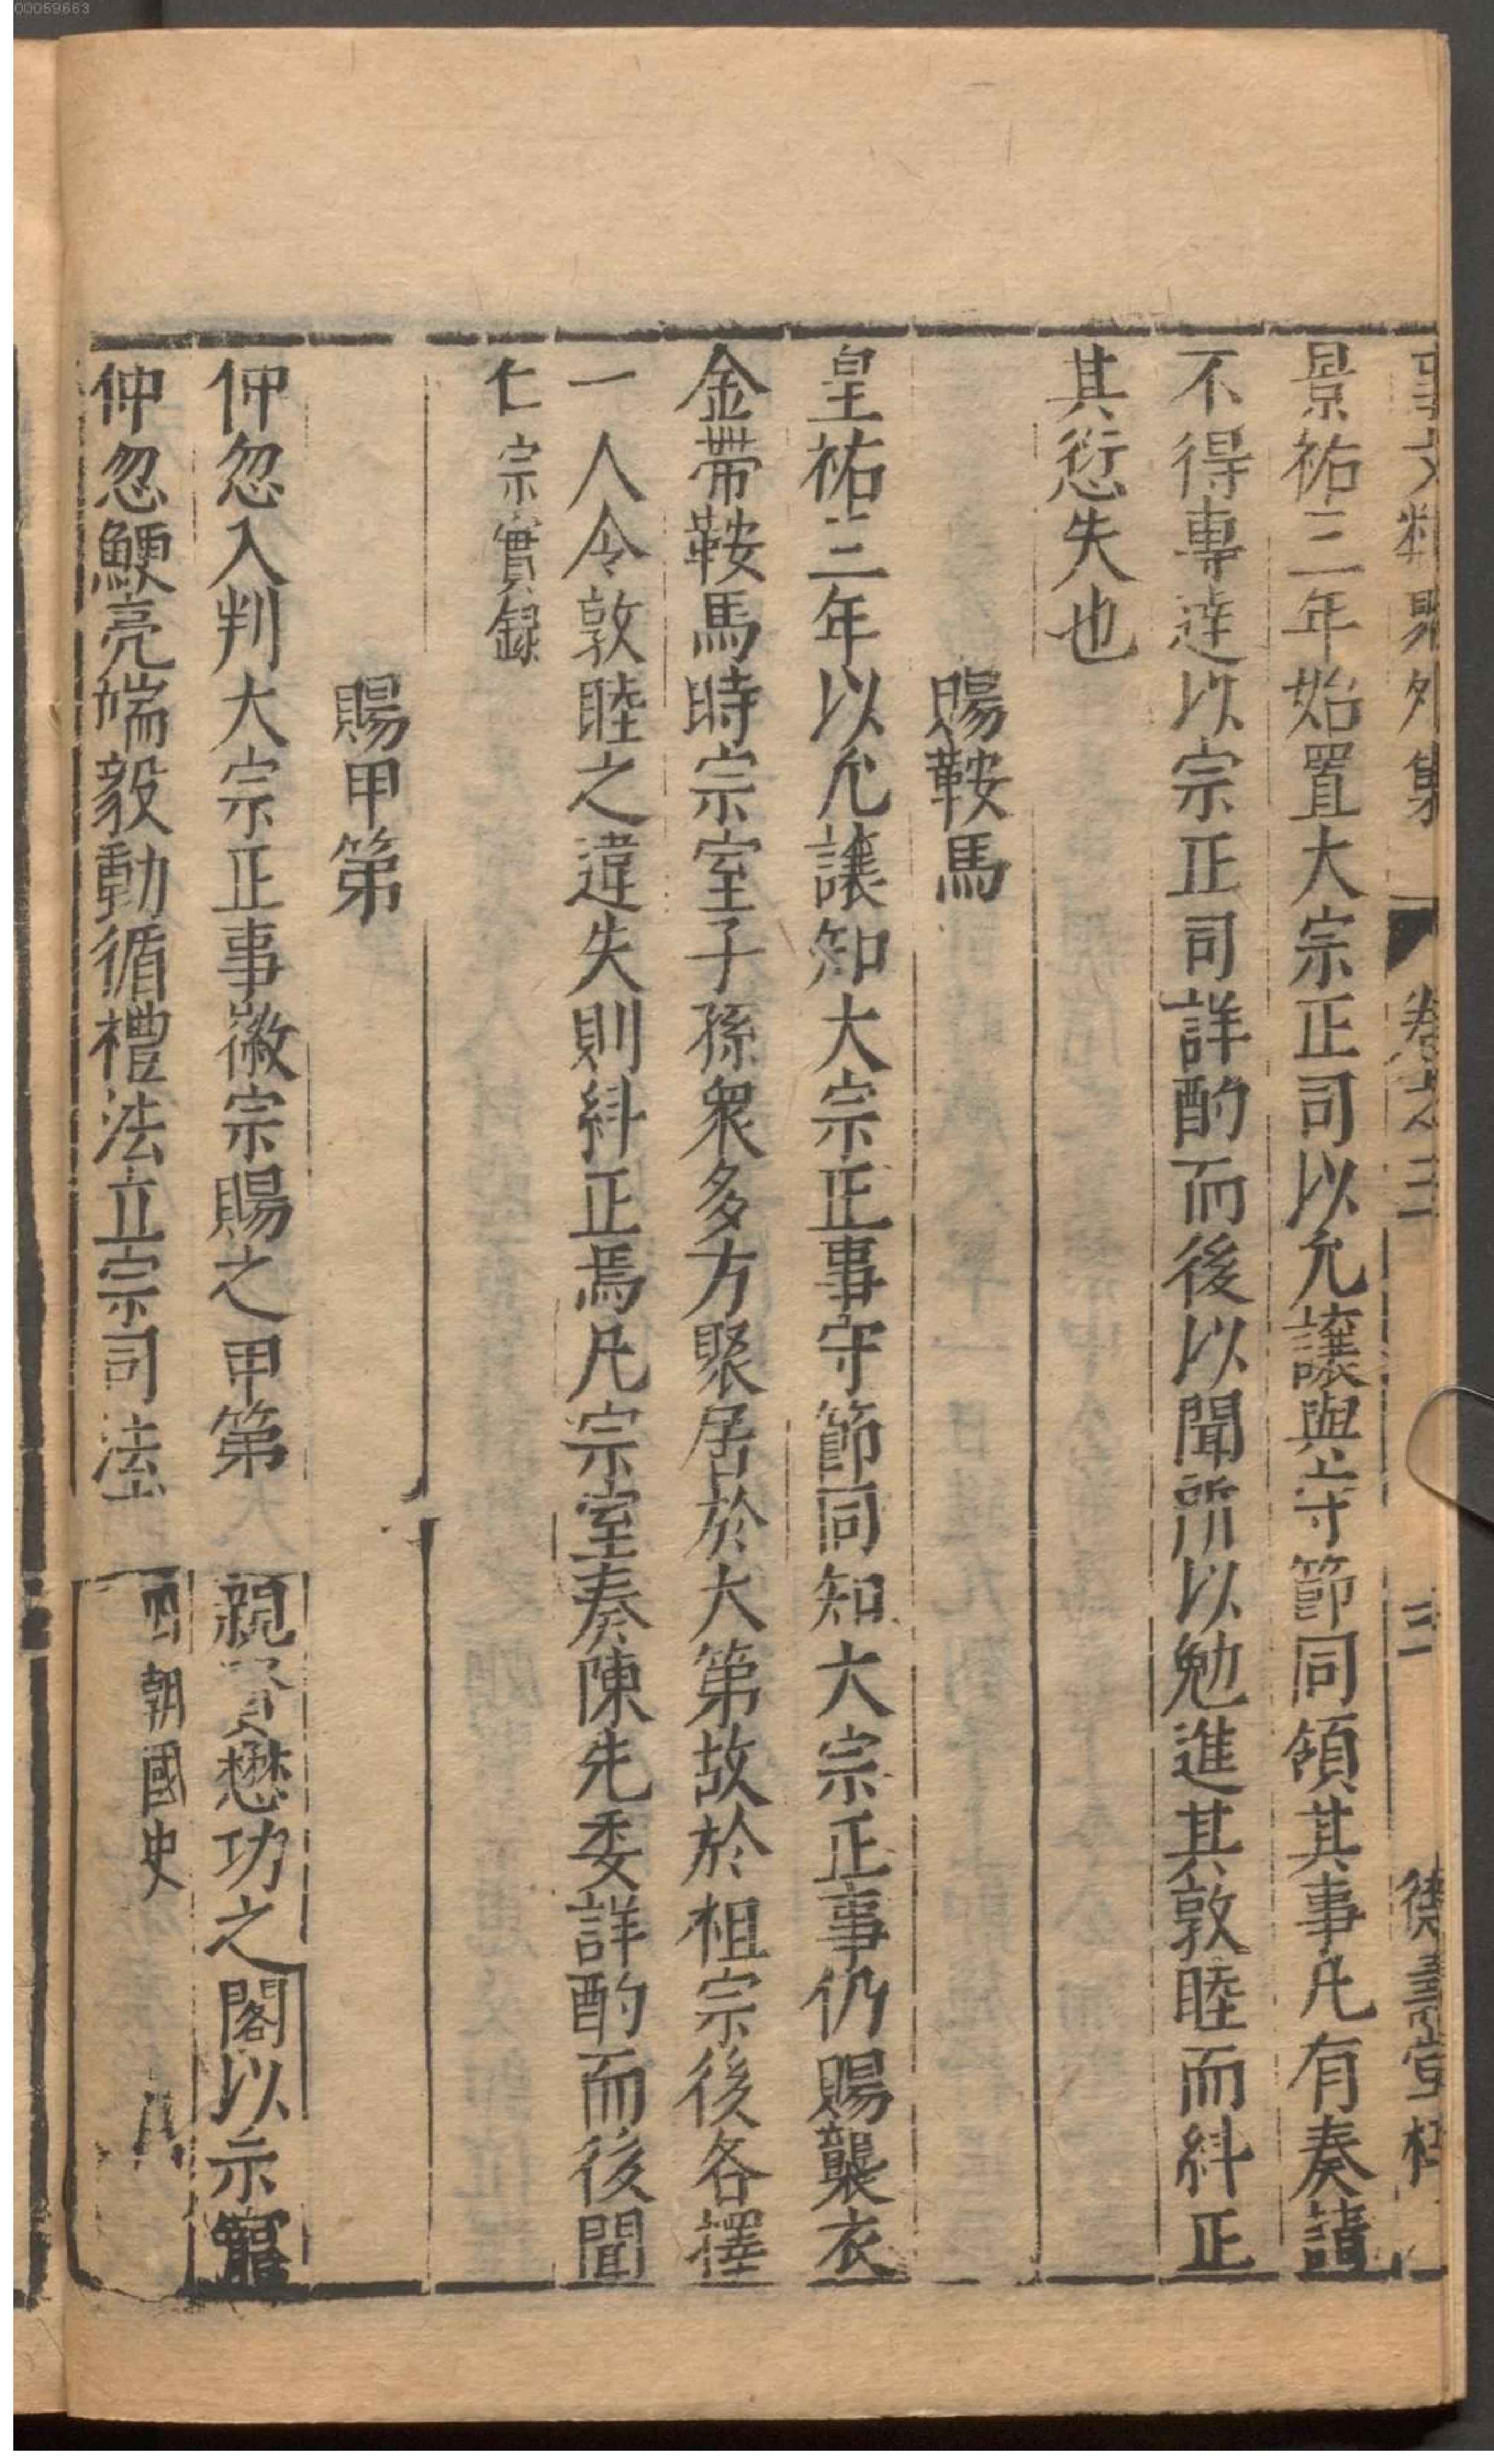 00059663
事文類聚外集 卷之三 三 德壽堂梓
景祐三年始置大宗正司以允讓與守節同領其事凡有奏請
不得專達以宗正司詳酌而後以聞所以勉進其敦睦而糾正
其愆失也
賜鞍馬
皇祐三年以允讓知大宗正事守節同知大宗正事仍賜襲衣
金帶鞍馬時宗室子孫衆多方聚居於大第故於祖宗後各擇
一人令敦睦之違失則糾正焉凡宗室奏陳先委詳酌而後聞
仁宗實録
賜甲第
仲忽入判大宗正事徽宗賜之甲第 親賢懋功之閣以示寵
仲忽鯁亮端毅動循禮法立宗司法 四朝國史